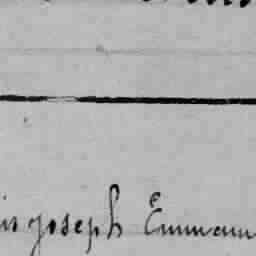 is joseph Emmanu